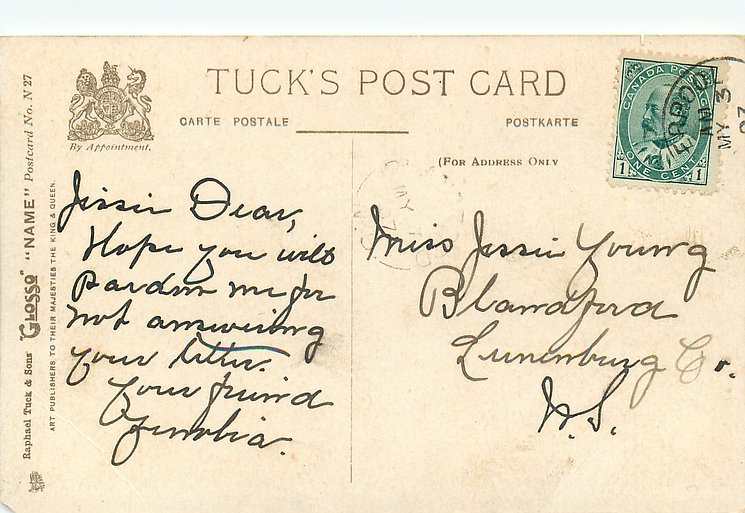 TUCK'S POST CARD
CARTE POSTALE
POSTKARTE
By Appointment.
(FOR ADDRESS ONLY
CANADA POSTAGE
1 ONE CENT 1
AM
MY 3
07
MY
N.S.
Raphael Tuck & Sons' "GLOSSO" "NAME" Postcard No. N 27
ART PUBLISHERS TO THEIR MAJESTIES THE KING & QUEEN.
Jessie Dear,
Hope you will
Pardon me for
not answering
your letter.
your friend
Zenobia.
Miss Jessie Young
Blandford
Lunenburg Co.
N.S.